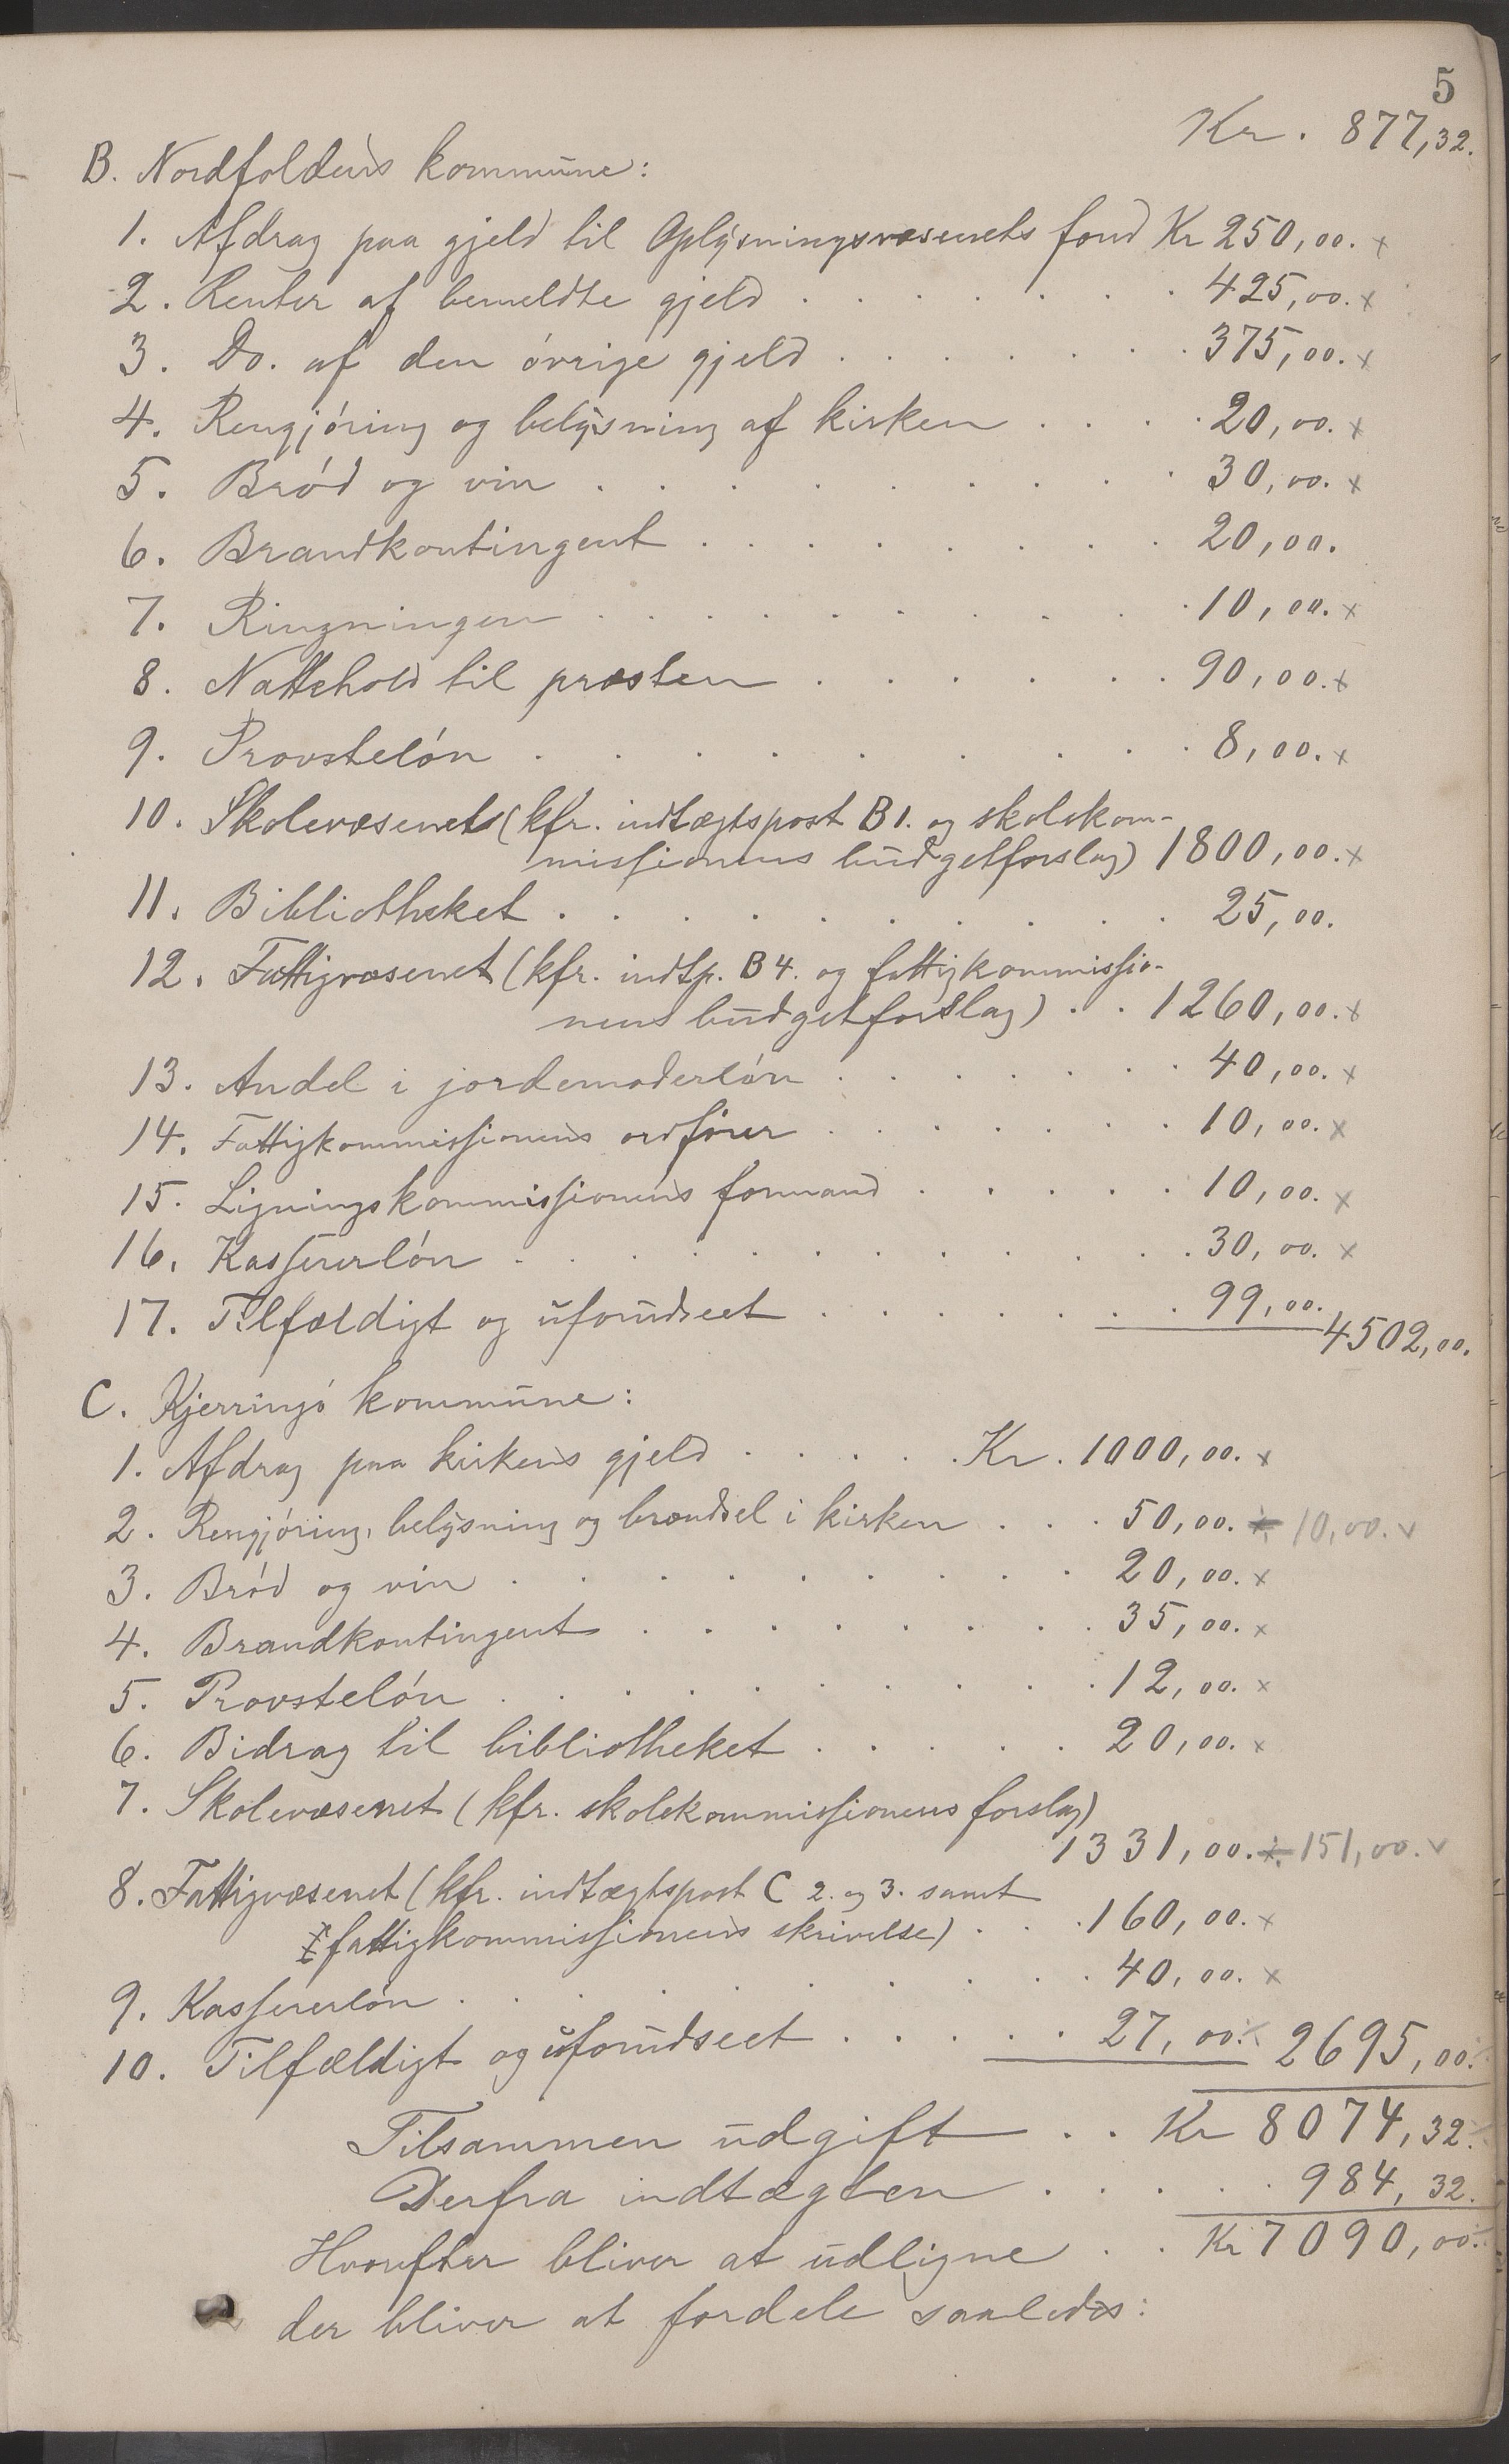 5
Kr. 877,32.
B. Nordfoldens kommune:
1. Afdrag paa gjeld til Oplysningsvæsenets fond Kr 250,00. x
2. Renter af bemeldte gjeld . . . . . . . 425,00. x
3. Do. af den övrige gjeld . . . . . . . 375,00. x
4. Rengjöring og belysning af kirken . . . . 20,00. x
5. Bröd og vin . . . . . . . . . . 30,00. x
6. Brandkontingent . . . . . . . . 20,00.
7. Ringningen . . . . . . . . . 10,00. x
8. Nattehold til præsten . . . . . . 90,00. x
9. Provstelön . . . . . . . . . . 8,00. x
10. Skolevæsenet (kfr. indtægtspost B 1. og skolekom-
missionens budgetforslag) 1800,00. x
11. Bibliotheket . . . . . . . . . . 25,00.
12. Fattigvæsenet (kfr. indtp. B 4. og fattigkommissio-
nens budgetforslag) . . 1260,00. x
13. Andel i jordemoderlön . . . . . . . 40,00. x
14. Fattigkommissionens ordförer . . . . . . . 10,00. x
15. Ligningskommissionens formand . . . . . 10,00. x
16. Kassererlön . . . . . . . . . . 30,00. x
17. Tilfældigt og uforudseet . . . . . . . 99,00.
4502,00.
C. Kjerringö kommune:
1. Afdrag paa kirkens gjeld . . . . . Kr. 1000,00. x
2. Rengjöring, belysning og brændsel i kirken . . . 50,00. x 10,00. v
3. Bröd og vin . . . . . . . . . 20,00. x
4. Brandkontingent . . . . . . . . 35,00. x
5. Provstelön . . . . . . . . . . 12,00. x
6. Bidrag til bibliotheket . . . . . 20,00. x
7. Skolevæsenet (kfr. skolekommissionens forslag)
1331,00. x 151,00. v
8. Fattigvæsenet (kfr. indtægtspost C 2. og 3. samt
fattigkommissionens skrivelse) . . . 160,00. x
9. Kassererlön . . . . . . . . . . 40,00. x
10. Tilfældigt og uforudseet . . . . . 27,00. x 2695,00.
Tilsammen udgift . . Kr 8074,32.
Derfra indtægten . . . . . 984,32.
Hvorefter bliver at udligne . . Kr 7090,00.
der bliver at fordele saaledes: